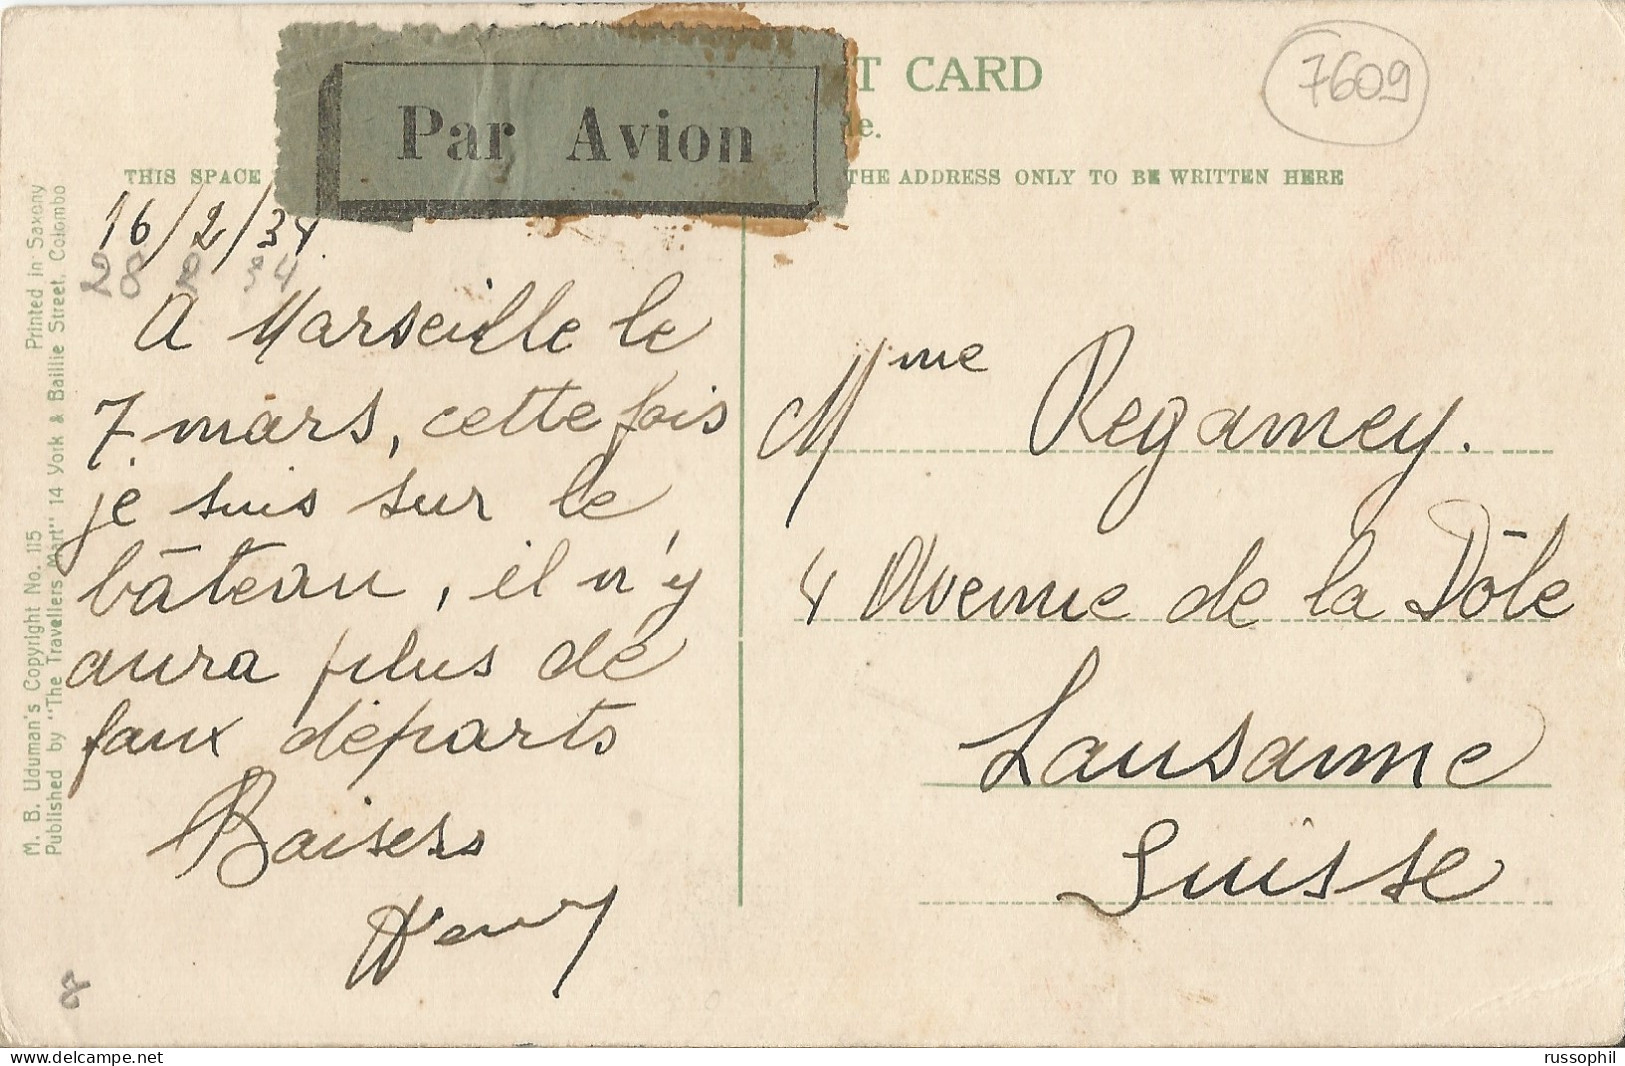 T CARD
Par Avion
7609
le.
THIS SPACE
THE ADDRESS ONLY TO BE WRITTEN HERE
16/2/34.
28 2 34
A Marseille le
7 mars, cette fois
je suis sur le
bâteau, il n'y
aura plus de
faux départs
Baisers
Henry
Mme Regamey.
4 Avenue de la Dôle
Lausanne
Suisse
M. B. Uduman's Copyright No. 115 Printed in Saxony
Published by "The Travellers Mart" 14 York & Baillie Street, Colombo
russophil
www.delcampe.net